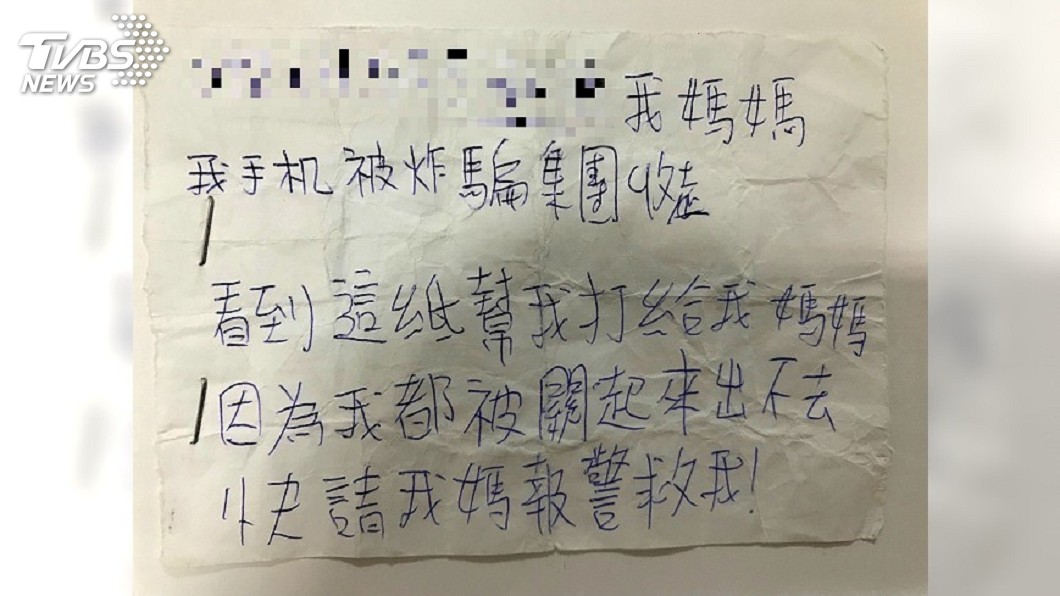 TVBS
NEWS
我媽媽
我手机被炸騙集團收走
看到這紙幫我打給我媽媽
因為我都被關起來出不去
快請我媽報警救我!